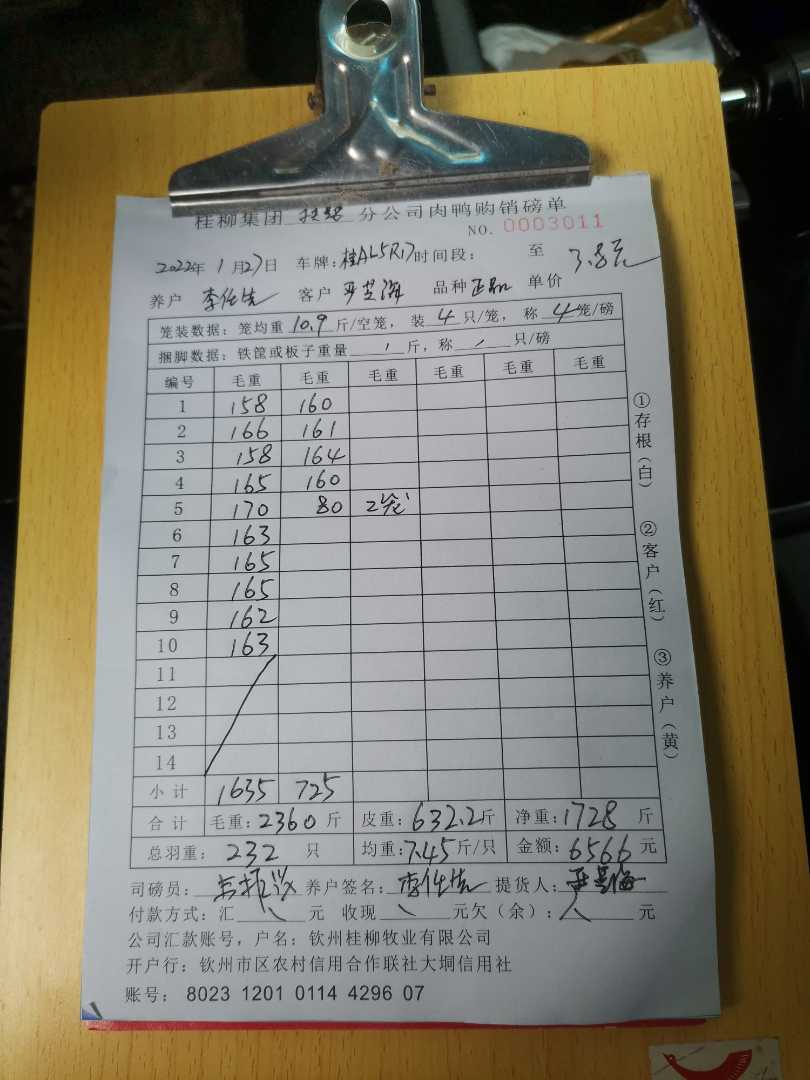 桂柳集团 分公司肉鸭购销磅单
NO. 0003011
2022年 1月27日 车牌:桂AL5R17 时间段: 至 3.8元
养户 李仕吉 客户 品种 正品 单价
笼装数据:笼均重 10.9 斤/空笼, 装 4 只/笼, 称 4 笼/磅
捆脚数据:铁筐或板子重量 / 斤,称 / 只/磅
编号 毛重 毛重 毛重 毛重 毛重 毛重
1 158 160
2 166 161
3 158 164
4 165 160
5 170 80 2笼
6 163
7 165
8 165
9 162
10 163
11
12
13
14
小计 1635 725
合计 毛重:2360 斤 皮重:632.2斤 净重:1728 斤
总羽重: 232 只 均重:7.45斤/只 金额:6566元
司磅员: 养户签名:李仕吉 提货人:
付款方式:汇 \ 元 收现 \ 元欠(余): 元
公司汇款账号,户名:钦州桂柳牧业有限公司
开户行:钦州市区农村信用合作联社大垌信用社
账号: 8023 1201 0114 4296 07
①存根(白) ②客户(红) ③养户(黄)